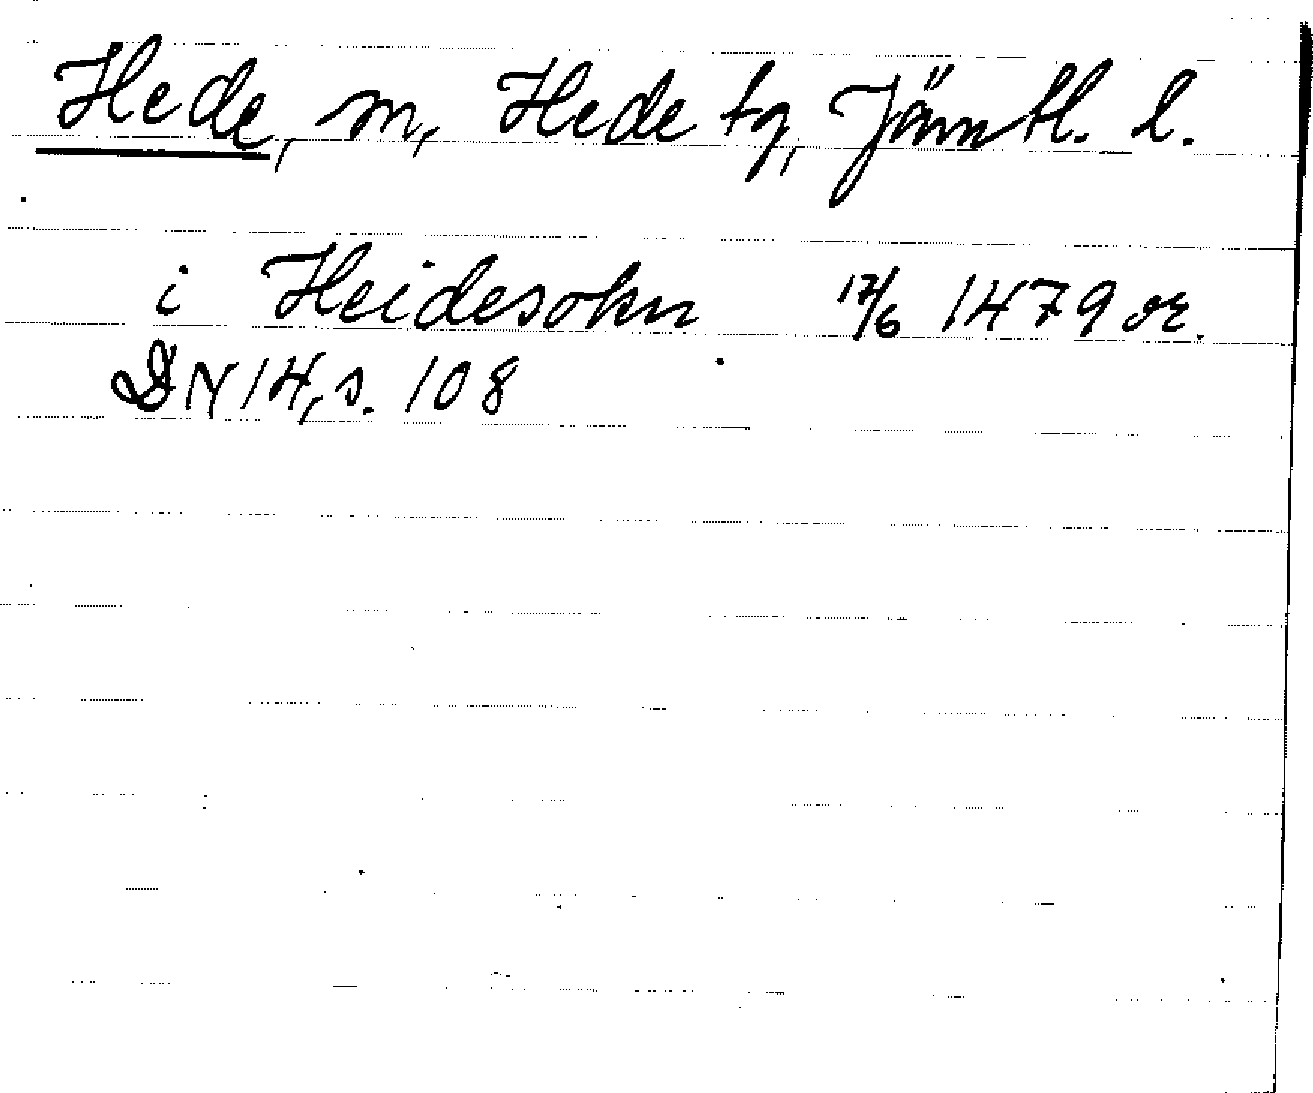 Hede, sn, Hede tg, Jämtl. l.
i Heidesokn 17/6 1479 or.
DN 14, s. 108